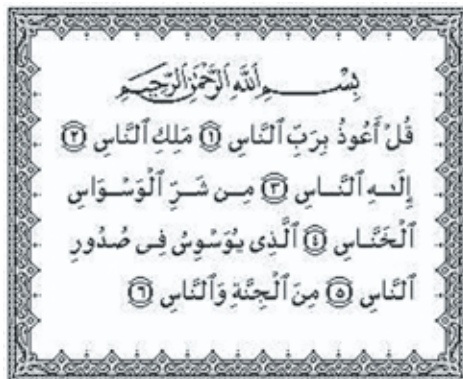 بِسْمِ ٱللَّهِ ٱلرَّحْمَٰنِ ٱلرَّحِيمِ
قُلْ أَعُوذُ بِرَبِّ ٱلنَّاسِ ۝١ مَلِكِ ٱلنَّاسِ ۝٢
إِلَٰهِ ٱلنَّاسِ ۝٣ مِن شَرِّ ٱلْوَسْوَاسِ
ٱلْخَنَّاسِ ۝٤ ٱلَّذِى يُوَسْوِسُ فِى صُدُورِ
ٱلنَّاسِ ۝٥ مِنَ ٱلْجِنَّةِ وَٱلنَّاسِ ۝٦